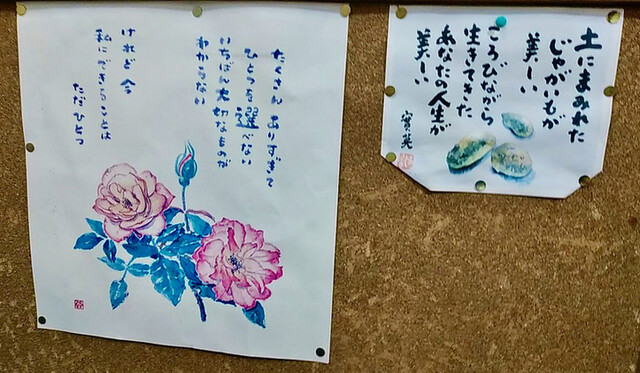 たくさん ありすぎて
ひとつを 選べない
いちばん大切なものが
わからない
けれど 今
私にできることは
ただひとつ
土にまみれた
じゃがいもが
美しい
ころびながら
生きてきた
あなたの人生が
美しい